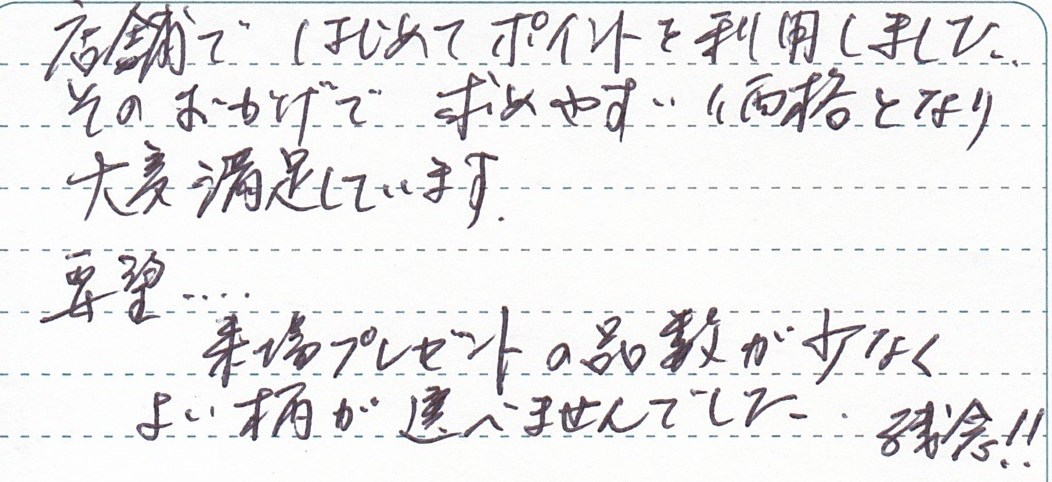 店舗で はじめてポイントを利用しました.
そのおかげで 求めやすい価格となり
大変満足しています.
要望....
来場プレゼントの品数が少なく
よい柄が選べませんでした. 残念!!